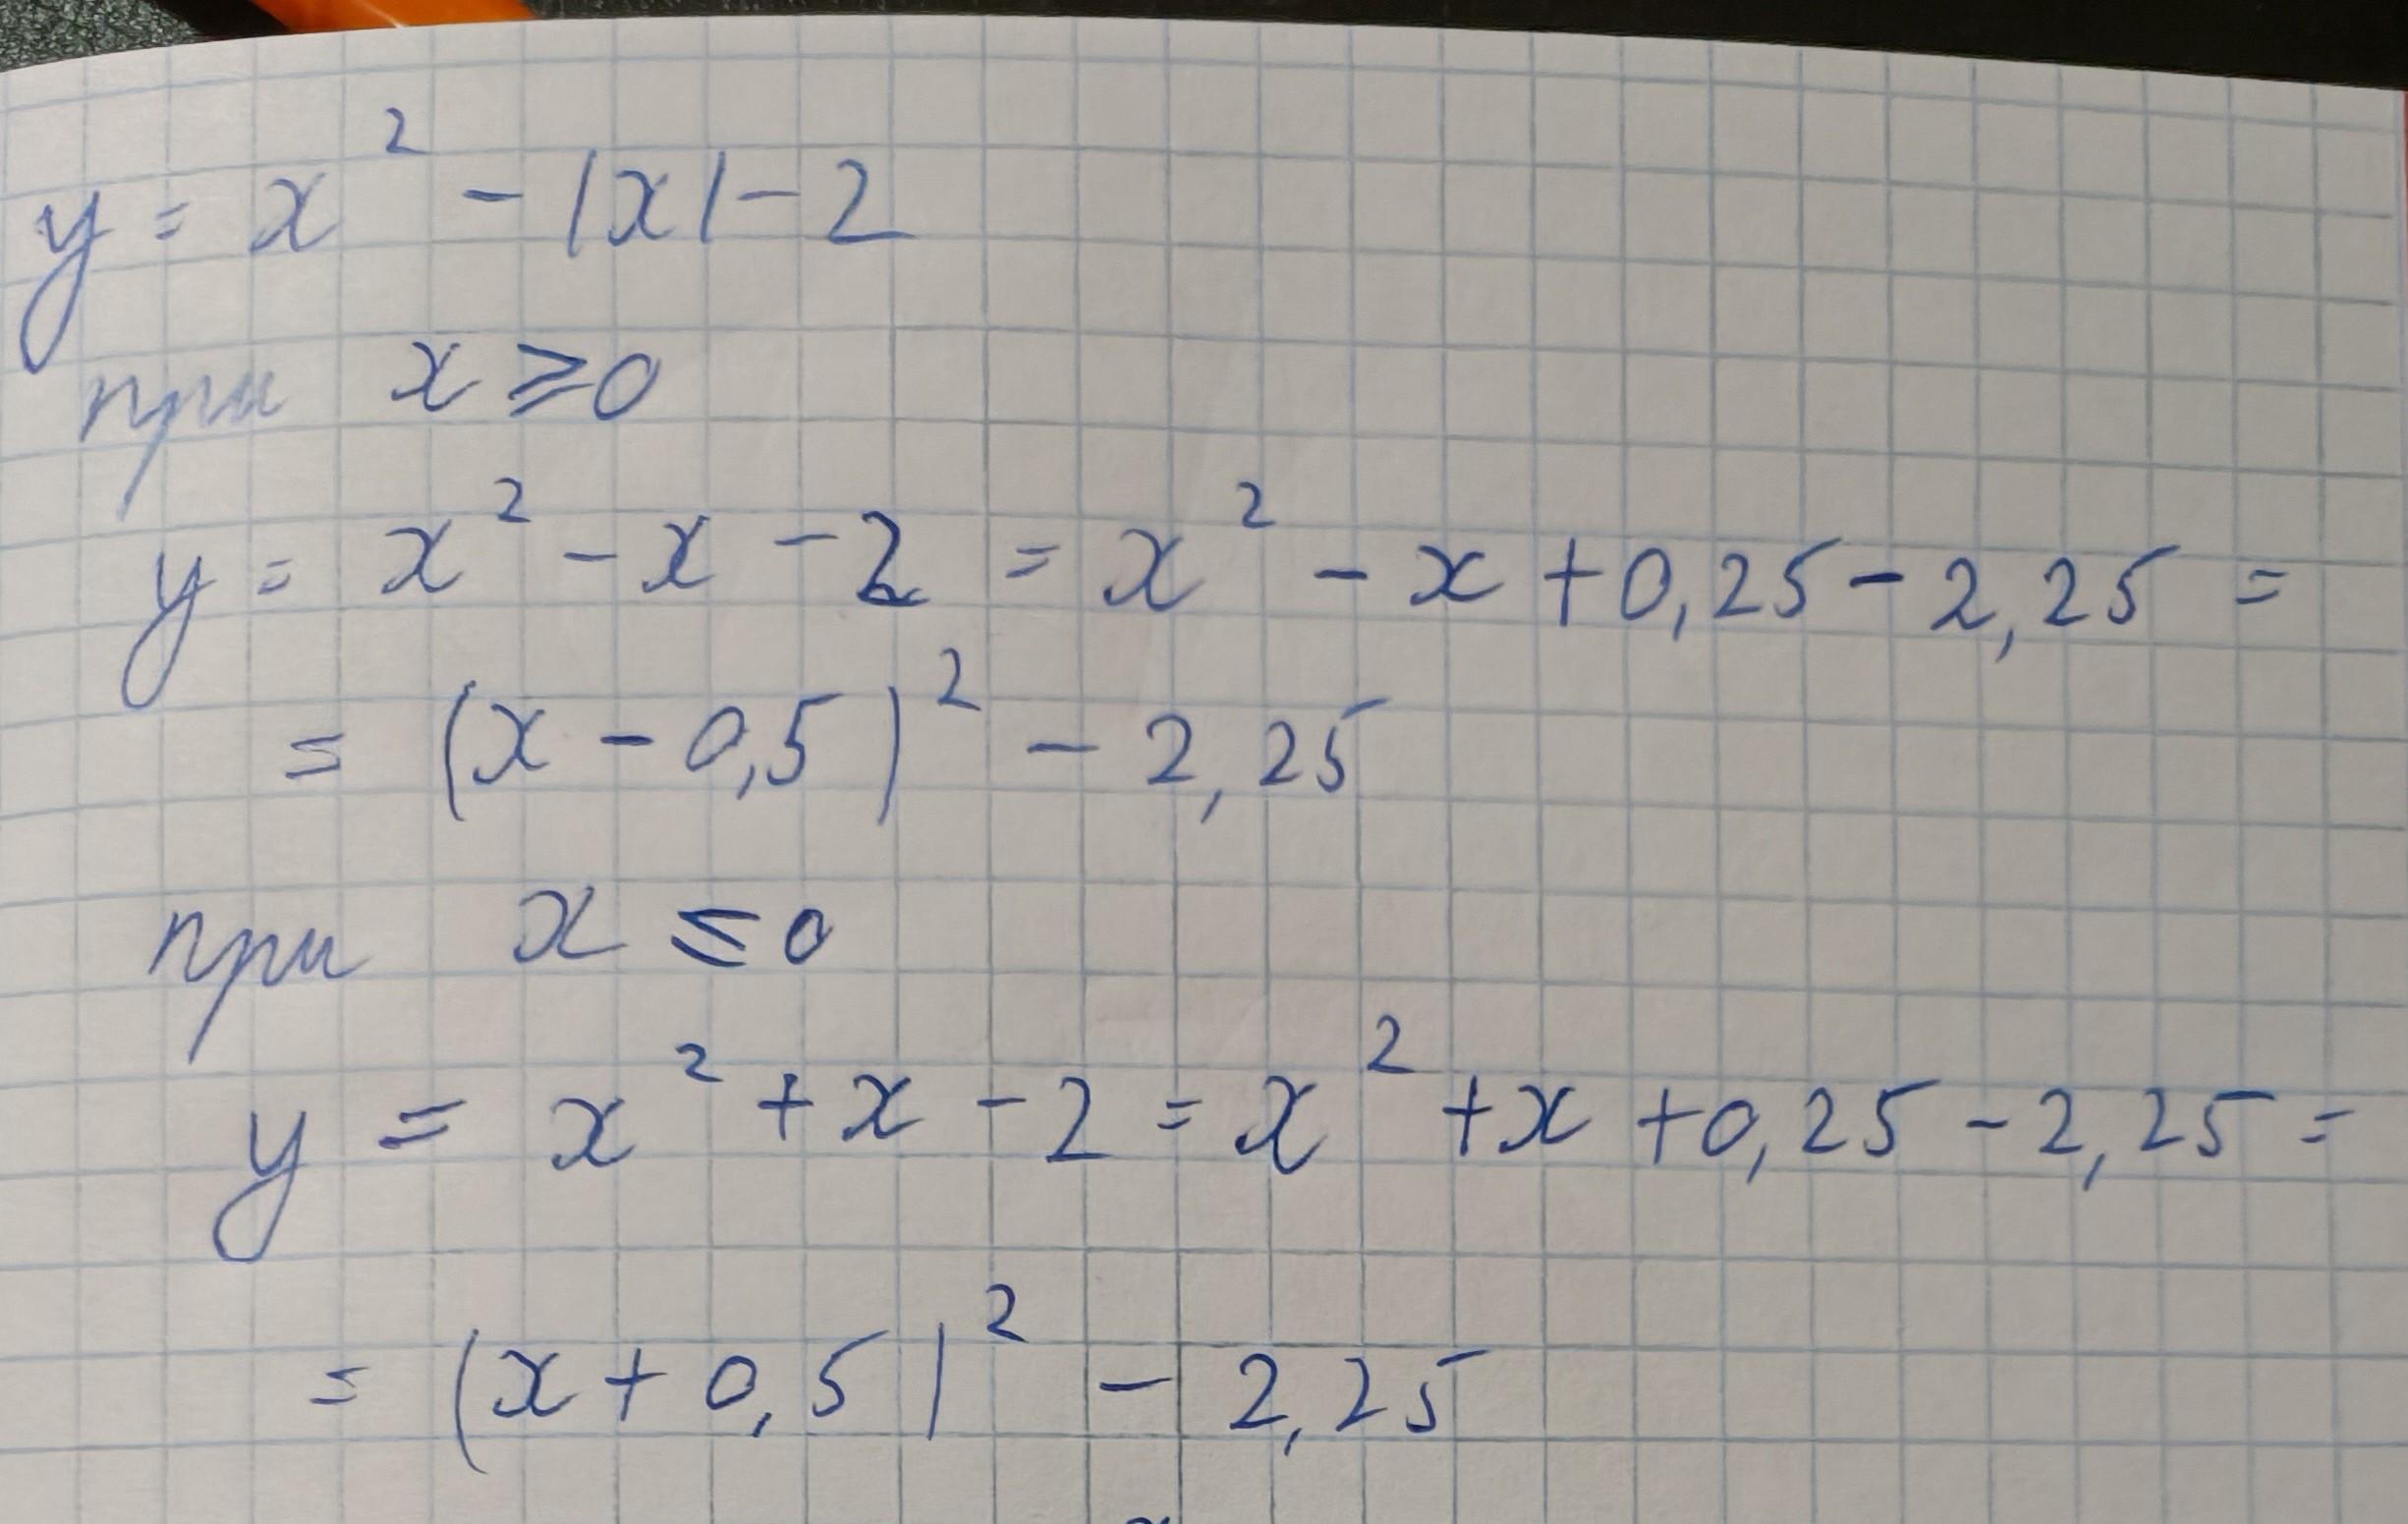 y = x² - |x| - 2
при x ≥ 0
y = x² - x - 2 = x² - x + 0,25 - 2,25 =
= (x - 0,5)² - 2,25
при x ≤ 0
y = x² + x - 2 = x² + x + 0,25 - 2,25 =
= (x + 0,5)² - 2,25